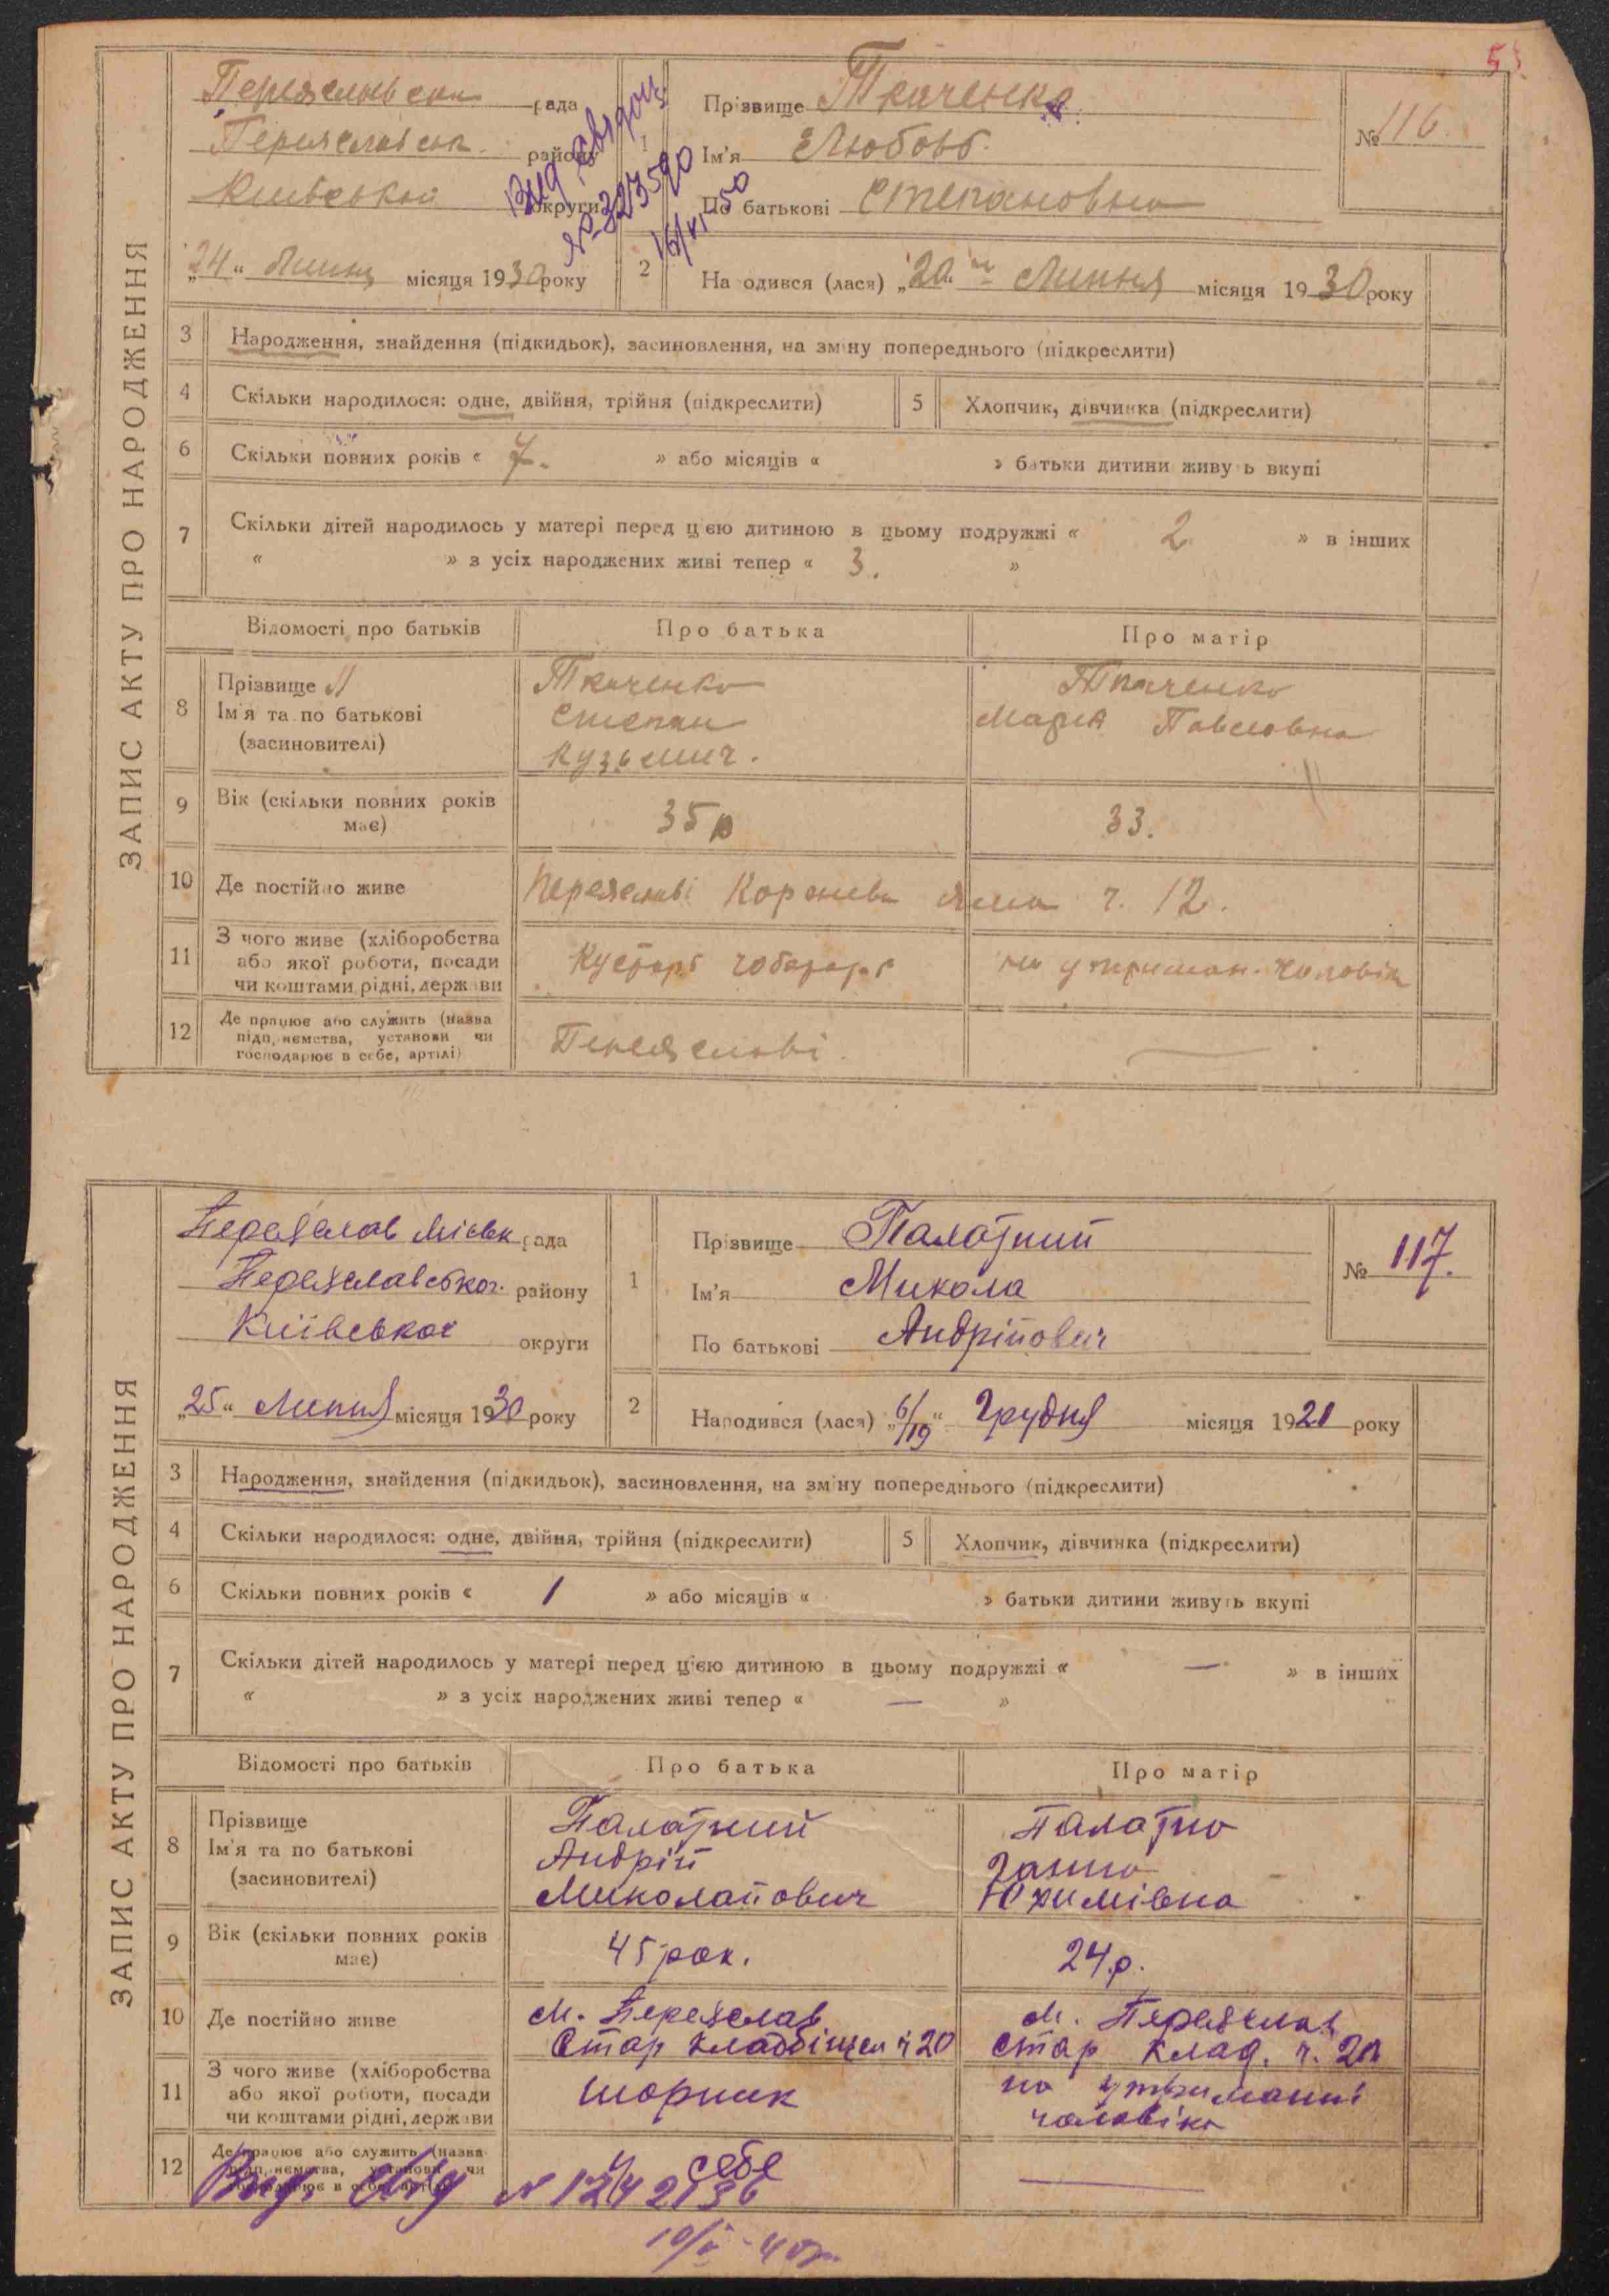 5
ЗАПИС АКТУ ПРО НАРОДЖЕННЯ
Переяславськ рада
Переяславськ району
Київської округи
Вид. свідоц
№ 323590
16/VI 50
„24“ Липня місяця 1930 року
1
Прізвище Ткаченко
Ім'я Любовь.
По батькові Степановна
№ 116.
2 Народився (лася) „20“ Липня місяця 1930 року
3 Народження, знайдення (підкидьок), засиновлення, на зміну попереднього (підкреслити)
4 Скільки народилося: одне, двійня, трійня (підкреслити) 5 Хлопчик, дівчинка (підкреслити)
6 Скільки повних років « 7. » або місяців « » батьки дитини живуть вкупі
7 Скільки дітей народилось у матері перед цією дитиною в цьому подружжі « 2 » в інших
« » з усіх народжених живі тепер « 3. »
Відомості про батьків Про батька Про матір
8 Прізвище Ткаченко Ткаченко
Ім'я та по батькові Степан Мария Павловна
(засиновителі) Кузьмич.
9 Вік (скільки повних років має) 35 р 33.
10 Де постійно живе Переяславі ч. 12.
11 З чого живе (хліборобства
або якої роботи, посади
чи коштами рідні, держави Кустарь чоботарь на утриман. чоловіка
12 Де працює або служить (назва
підприємства, установи чи
господарює в себе, артілі) Переяславі.
ЗАПИС АКТУ ПРО НАРОДЖЕННЯ
Переяслав Міськ рада
Переяславської району
Київської округи
„25“ Липня місяця 1930 року
1
Прізвище Палатний
Ім'я Микола
По батькові Андрійович
№ 117.
2 Народився (лася) „6/19“ Грудня місяця 1921 року
3 Народження, знайдення (підкидьок), засиновлення, на зміну попереднього (підкреслити)
4 Скільки народилося: одне, двійня, трійня (підкреслити) 5 Хлопчик, дівчинка (підкреслити)
6 Скільки повних років « 1 » або місяців « » батьки дитини живуть вкупі
7 Скільки дітей народилось у матері перед цією дитиною в цьому подружжі « — » в інших
« » з усіх народжених живі тепер « — »
Відомості про батьків Про батька Про матір
8 Прізвище Палатний Палатно
Ім'я та по батькові Андрій Ганна
(засиновителі) Миколайович Юхимівна
9 Вік (скільки повних років має) 45 рок. 24 р.
10 Де постійно живе м. Переяслав м. Переяслав
Стар ч 20 Стар Клад. ч. 20
11 З чого живе (хліборобства
або якої роботи, посади
чи коштами рідні, держави шорник на утриманні
чоловіка
12 Де працює або служить (назва
підприємства, установи чи
господарює в себе, артілі) у себе —
Вид. свід №